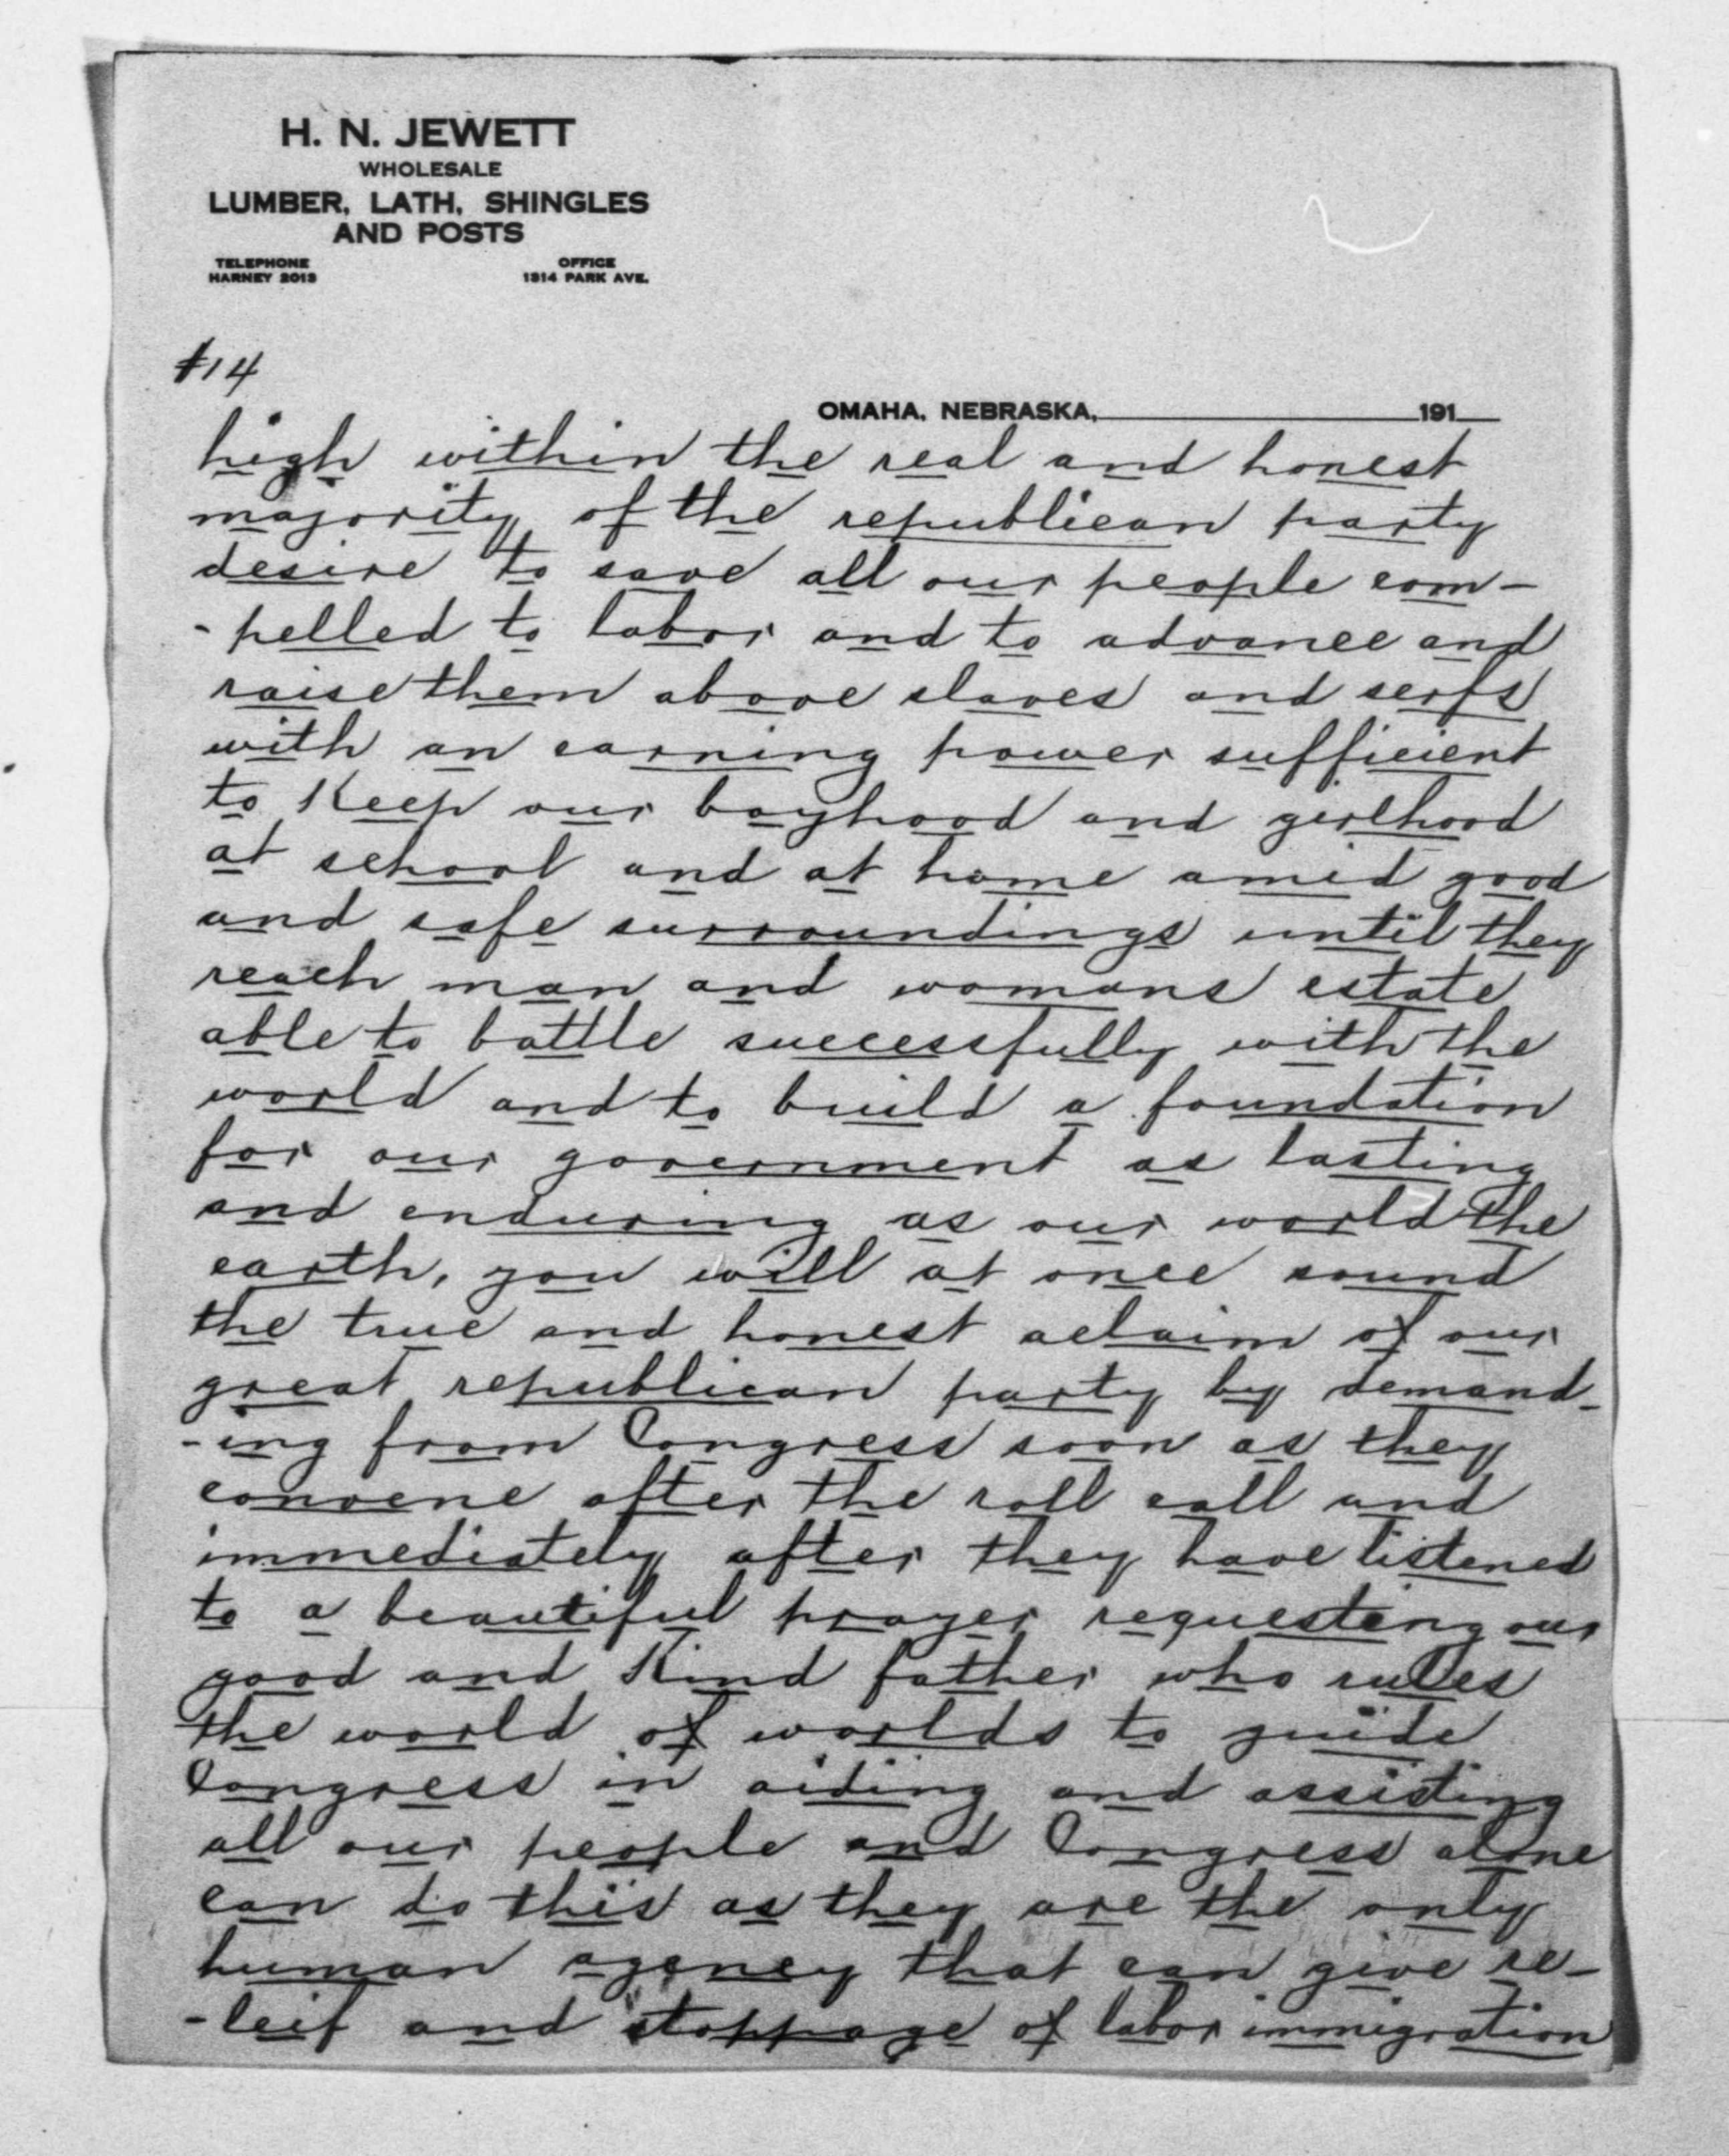 H. N. JEWETT
WHOLESALE
LUMBER, LATH, SHINGLES
AND POSTS
TELEPHONE OFFICE
HARNEY 2013 1314 PARK AVE.
#14
OMAHA, NEBRASKA, 191
high within the real and honest
majority of the republican party
desire to save all our people com-
-pelled to labor and to advance and
raise them above slaves and serfs
with an earning power sufficient
to Keep our boyhood and girlhood
at school and at home amid good
and safe surroundings until they
reach man and womans estate
able to battle successfully with the
world and to build a foundation
for our government as lasting
and enduring as our world the
earth, you will at once sound
the true and honest aclaim of our
great republican party by demand-
-ing from Congress soon as they
convene after the roll call and
immediately after they have listened
to a beautiful prayer requesting our
good and Kind father who rules
the world of worlds to guide
Congress in aiding and assisting
all our people and Congress alone
can do this as they are the only
human agency that can give re-
-leif and stoppage of labor immigration